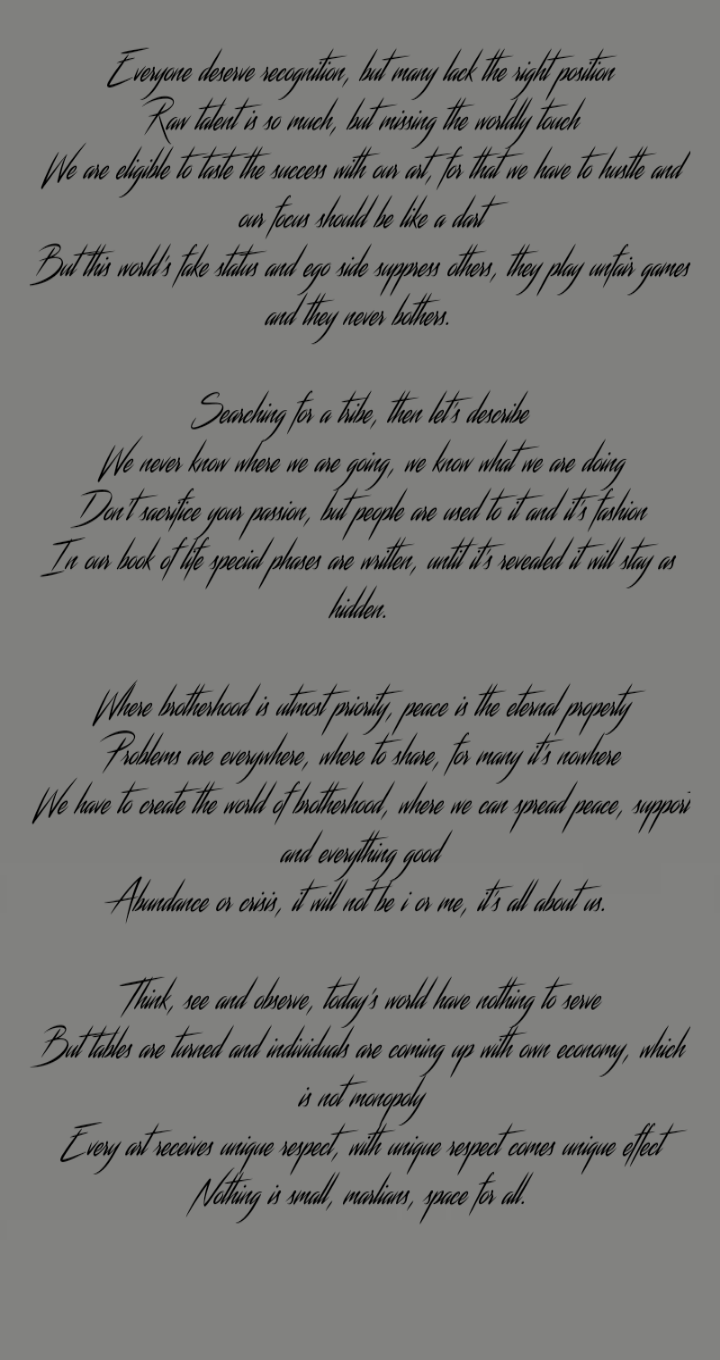 Everyone deserve recognition, but many lack the right position
Raw talent is so much, but missing the worldly touch
We are eligible to taste the success with our art, for that we have to hustle and
our focus should be like a dart
But this world's fake status and ego side suppress others, they play unfair games
and they never bothers.
Searching for a tribe, then let's describe
We never know where we are going, we know what we are doing
Don't sacrifice your passion, but people are used to it and it's fashion
In our book of life special phases are written, until it's revealed it will stay as
hidden.
Where brotherhood is utmost priority, peace is the eternal property
Problems are everywhere, where to share, for many it's nowhere
We have to create the world of brotherhood, where we can spread peace, support
and everything good
Abundance or crisis, it will not be i or me, it's all about us.
Think, see and observe, today's world have nothing to serve
But tables are turned and individuals are coming up with own economy, which
is not monopoly
Every art receives unique respect, with unique respect comes unique effect
Nothing is small, martians, space for all.